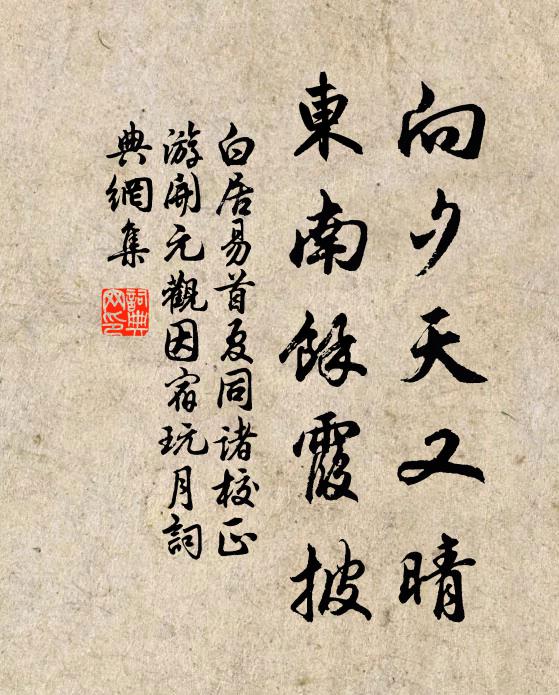 向夕天又晴
東南餘霞披
白居易首夏同诸校正
游開元觀因宿玩月詞
典網集
詞典網印